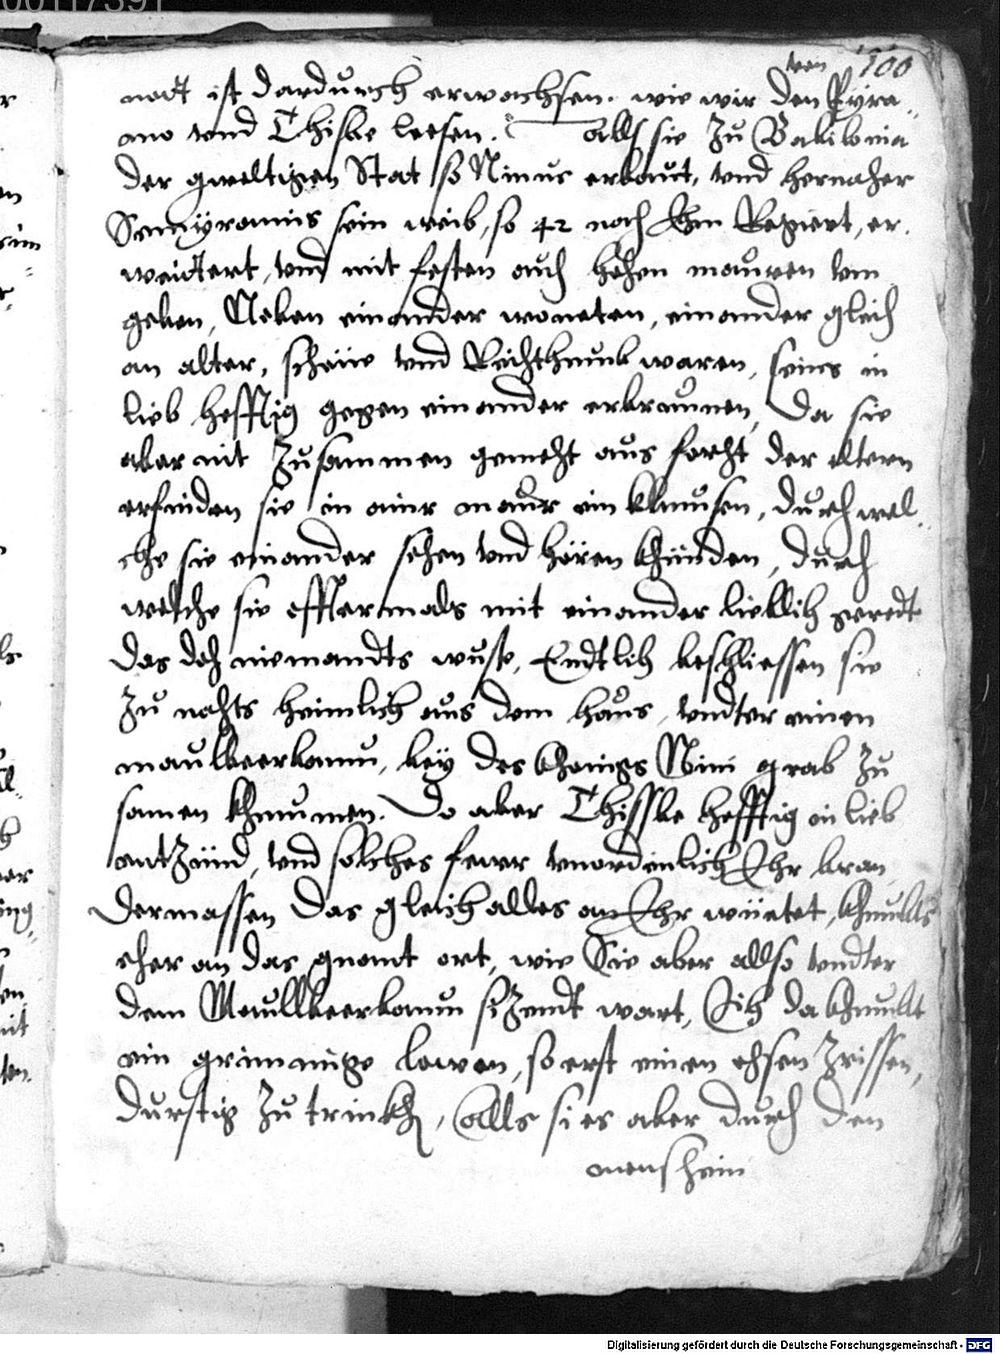 00117391
von 100
nott ist dardurch erwachsen. wie wir den Pÿra-
mo vnd Thisbe leesen. Alls sie zu Babilonia
der gweltigen Stat so Ninus erbaut, vnd hernaher
Semÿramis sein weib, so 42 nach Ihm Regiert, er-
weittert, vnd mit festen auch hohen mauren vm
geben, Neben einander woneten, einander gleich
an alter, schöne vnd Reichthumb waren, seins in
lieb hefftig gegen einander erbrunnen, Da sie
aber nit zusammen gemeht aus forht der eltern
erfinden sie in ainr maur ein klumsen, durch wel-
che sie einander sehen vnd hören khünden, durch
welche sie offtermals mit einander lieblich geredt
das doch niemandts wuste, Endtlich beschliessen sie
zu nahts heimlich aus dem haus, vndter einen
maulbeerbaum, beÿ des khonigs Nini grab zu
samen khummen. Do aber Thissbe hefftig in lieb
entzünd, vnd solches fewr vnordenlich Ihr bran
dermassen das gleich alles an Ihr wüetet, khumbts
eher an das gnant ort, wie Sie aber allso vndter
dem Maullbeerbaum sizendt wart, Sih da khumbt
ein grimmige lowen, so erst einen ohsen zrissen,
durstig zu trinkh, Alls si es aber durch den
monschein
Digitalisierung gefördert durch die Deutsche Forschungsgemeinschaft - DFG